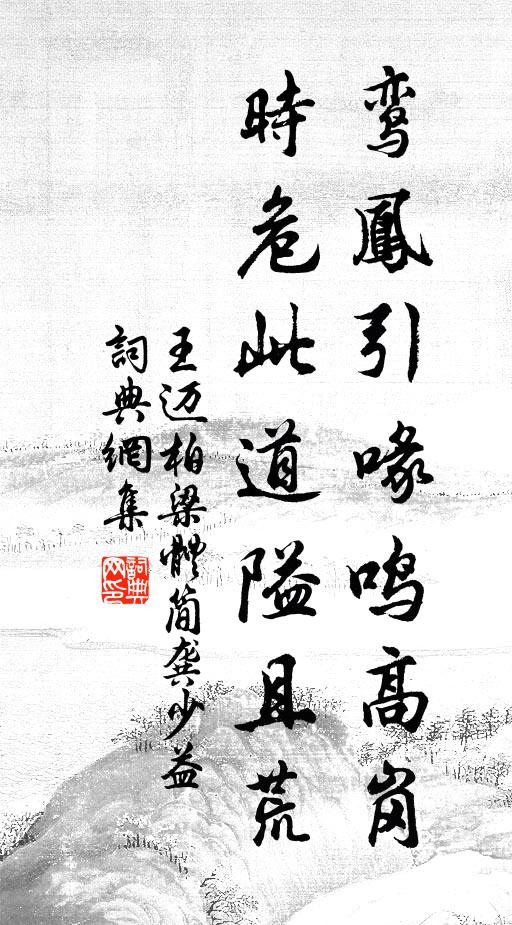 鸾鳳引喙鸣高岗
時危此道隘且荒
王迈柏梁體简龚少益
詞典網集
詞典
网印